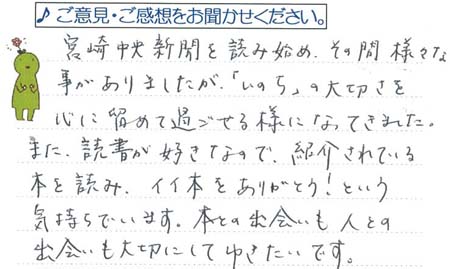 ♪ご意見・ご感想をお聞かせください。
宮崎中央新聞を読み始め、その間様々な
事がありましたが、「いのち」の大切さを
心に留めて過ごせる様になってきました。
また、読書が好きなので、紹介されている
本を読み、イイ本をありがとう!という
気持ちでいます。本との出会いも人との
出会いも大切にしてゆきたいです。